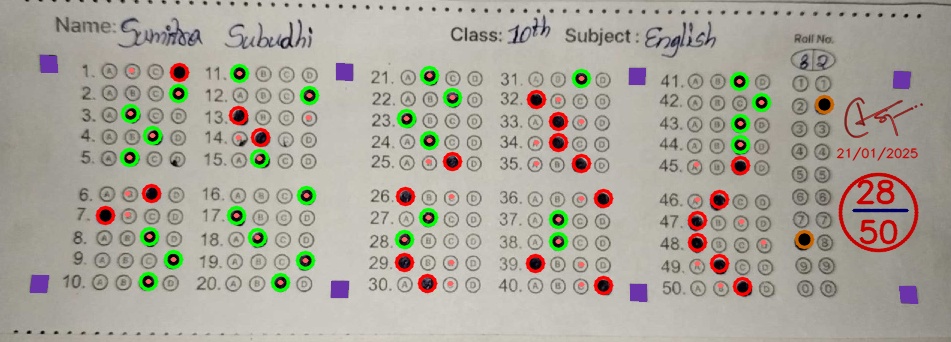 Name: Sumitra Subudhi Class: 10th Subject: English Roll No.
82
1. A B C
2. A B C
3. A C D
4. A B D
5. A C
6. A B D
7. B C D
8. A B D
9. A B C
10. A B D
11. B C D
12. A B C
13. B C D
14. A C D
15. A C D
16. A B C
17. B C D
18. A C D
19. A B C
20. A B D
21. A C D
22. A B D
23. B C D
24. A C D
25. A B D
26. B C D
27. A C D
28. B C D
29. B C D
30. A C D
31. A B D
32. B C D
33. A C D
34. A C D
35. A B D
36. A B C
37. A C D
38. A C D
39. B C D
40. A B C
41. A B D
42. A B C
43. A B D
44. A B D
45. A B D
46. A C D
47. B C D
48. B C D
49. A C D
50. A B D
1 1
2
3 3
4 4
5 5
6 6
7 7
8
9 9
0 0
21/01/2025
28
50